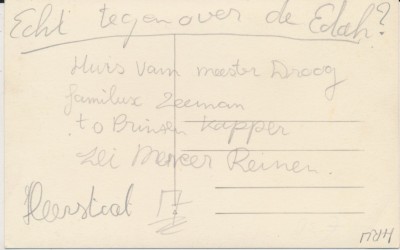 Echt tegenover de Edah?
Huis van meester Droog
familux Zeeman
to Prinsen Kapper
zei Meneer Reinen.
Heerstraat 17